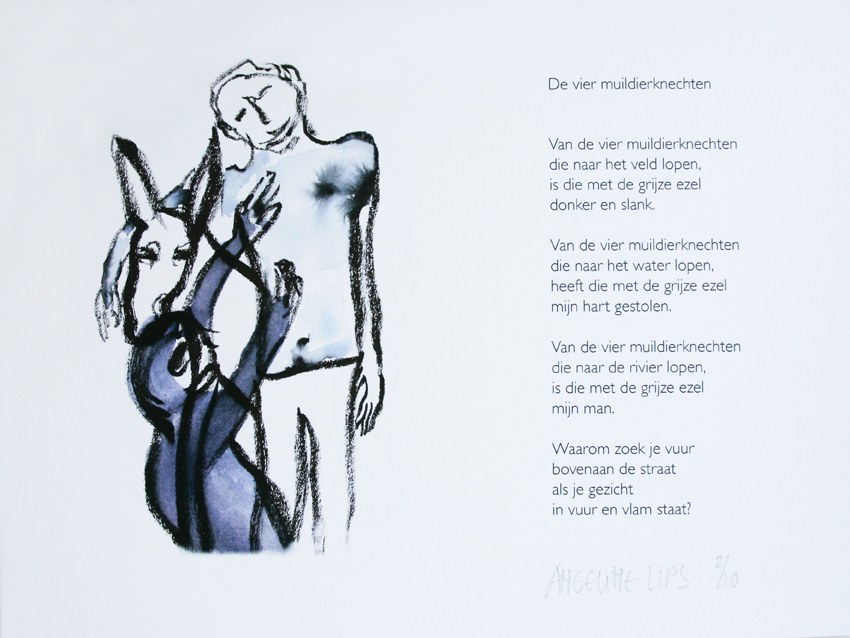 De vier muildierknechten
Van de vier muildierknechten
die naar het veld lopen,
is die met de grijze ezel
donker en slank.
Van de vier muildierknechten
die naar het water lopen,
heeft die met de grijze ezel
mijn hart gestolen.
Van de vier muildierknechten
die naar de rivier lopen,
is die met de grijze ezel
mijn man.
Waarom zoek je vuur
bovenaan de straat
als je gezicht
in vuur en vlam staat?
ANGELINE LIPS 2/10